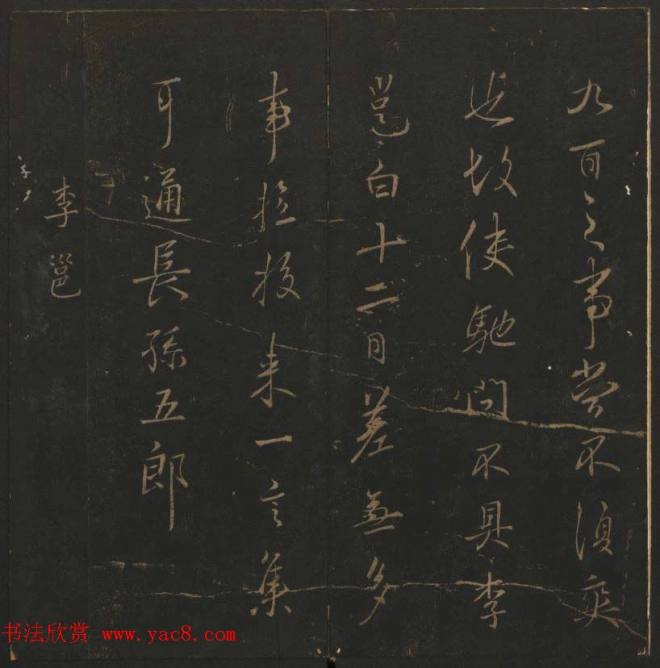 九百之事当不須奕
也故使馳問不具李
邕白十二日差無多
事檢校来一言集
耳通長孫五郎
李邕
书法欣赏 www.yac8.com